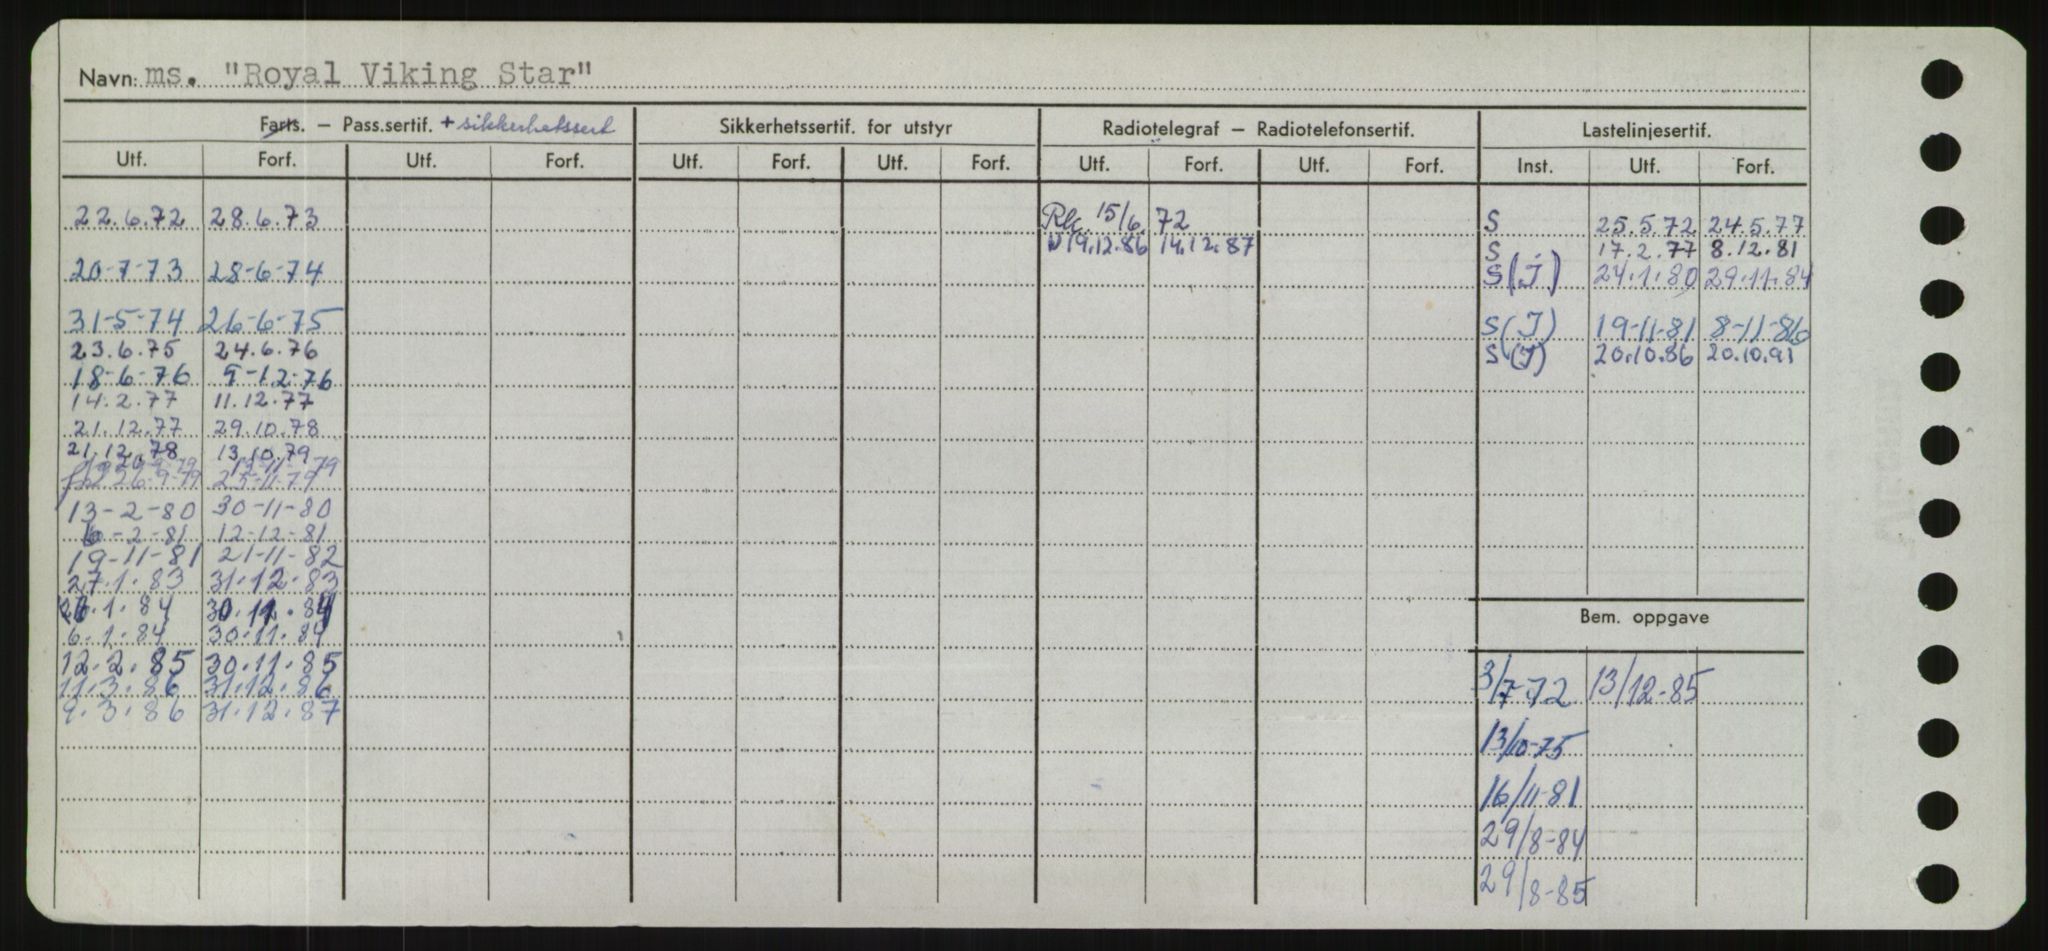 Navn: ms. "Royal Viking Star"
Farts. – Pass.sertif. + sikkerhetssert Sikkerhetssertif. for utstyr Radiotelegraf – Radiotelefonsertif. Lastelinjesertif.
Utf. Forf. Utf. Forf. Utf. Forf. Utf. Forf. Utf. Forf. Utf. Forf. Inst. Utf. Forf.
22.6.72 28.6.73 15/6. 72 S 25.5.72 24.5.77
19.12.86 14.12.87 S 17.2.77 8.12.81
20-7-73 28-6-74 S(J) 24.1.80 29.11.84
31-5-74 26-6-75 S(J) 19-11-81 8-11-86
23.6.75 24.6.76 S(J) 20.10.86 20.10.91
18-6-76 9-12-76
14.2.77 11.12.77
21.12.77 29.10.78
21.12.78 13.10.79
12-11-79
26-9-79 25-11-79
13-2-80 30-11-80
6-2-81 12-12-81
19-11-81 21-11-82
27.1.83 31.12.83
26.1.84 30.11.84
6.1.84 30.11.84
12.2.85 30.11.85
11.3.86 31.12.86
9.3.86 31.12.87
Bem. oppgave
3/7-72 13/12-85
13/10-75
16/11-81
29/8-84
29/8-85